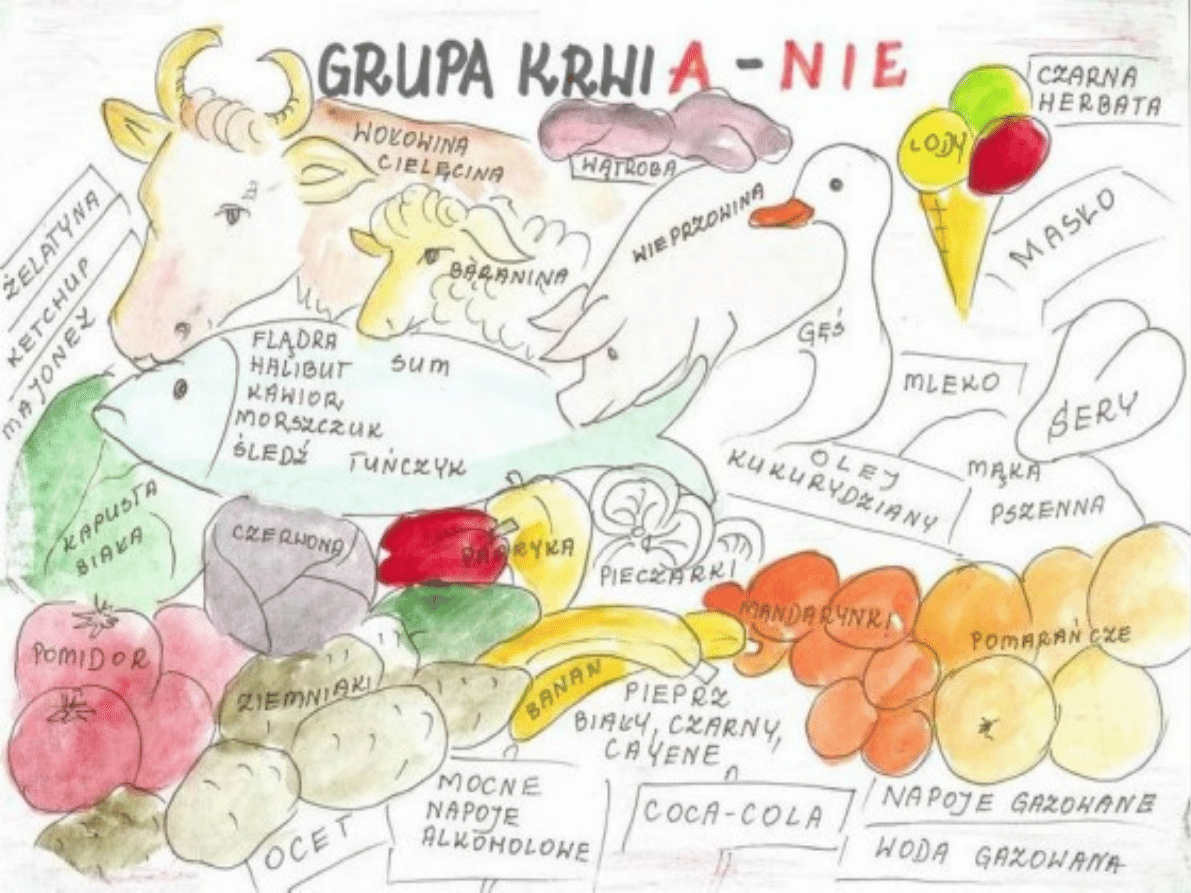 GRUPA KRWI A - NIE
CZARNA
HERBATA
LODY
WOŁOWINA
CIELĘCINA
WĄTROBA
WIEPRZOWINA
MASŁO
ŻELATYNA
KETCHUP
MAJONEZ
BARANINA
GĘŚ
FLĄDRA
HALIBUT
SUM
KAWIOR,
MORSZCZUK
ŚLEDŹ TUŃCZYK
MLEKO
SERY
OLEJ
KUKURYDZIANY
MĄKA
PSZENNA
KAPUSTA
BIAŁA
CZERWONA
PAPRYKA
PIECZARKI
MANDARYNKI
POMARAŃCZE
POMIDOR
ZIEMNIAKI
BANAN
PIEPRZ
BIAŁY, CZARNY,
CAYENE
OCET
MOCNE
NAPOJE
ALKOHOLOWE
COCA-COLA
NAPOJE GAZOWANE
WODA GAZOWANA